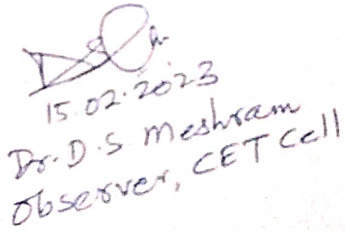 15.02.2023
Dr. D.S. Meshram
Observer, CET Cell